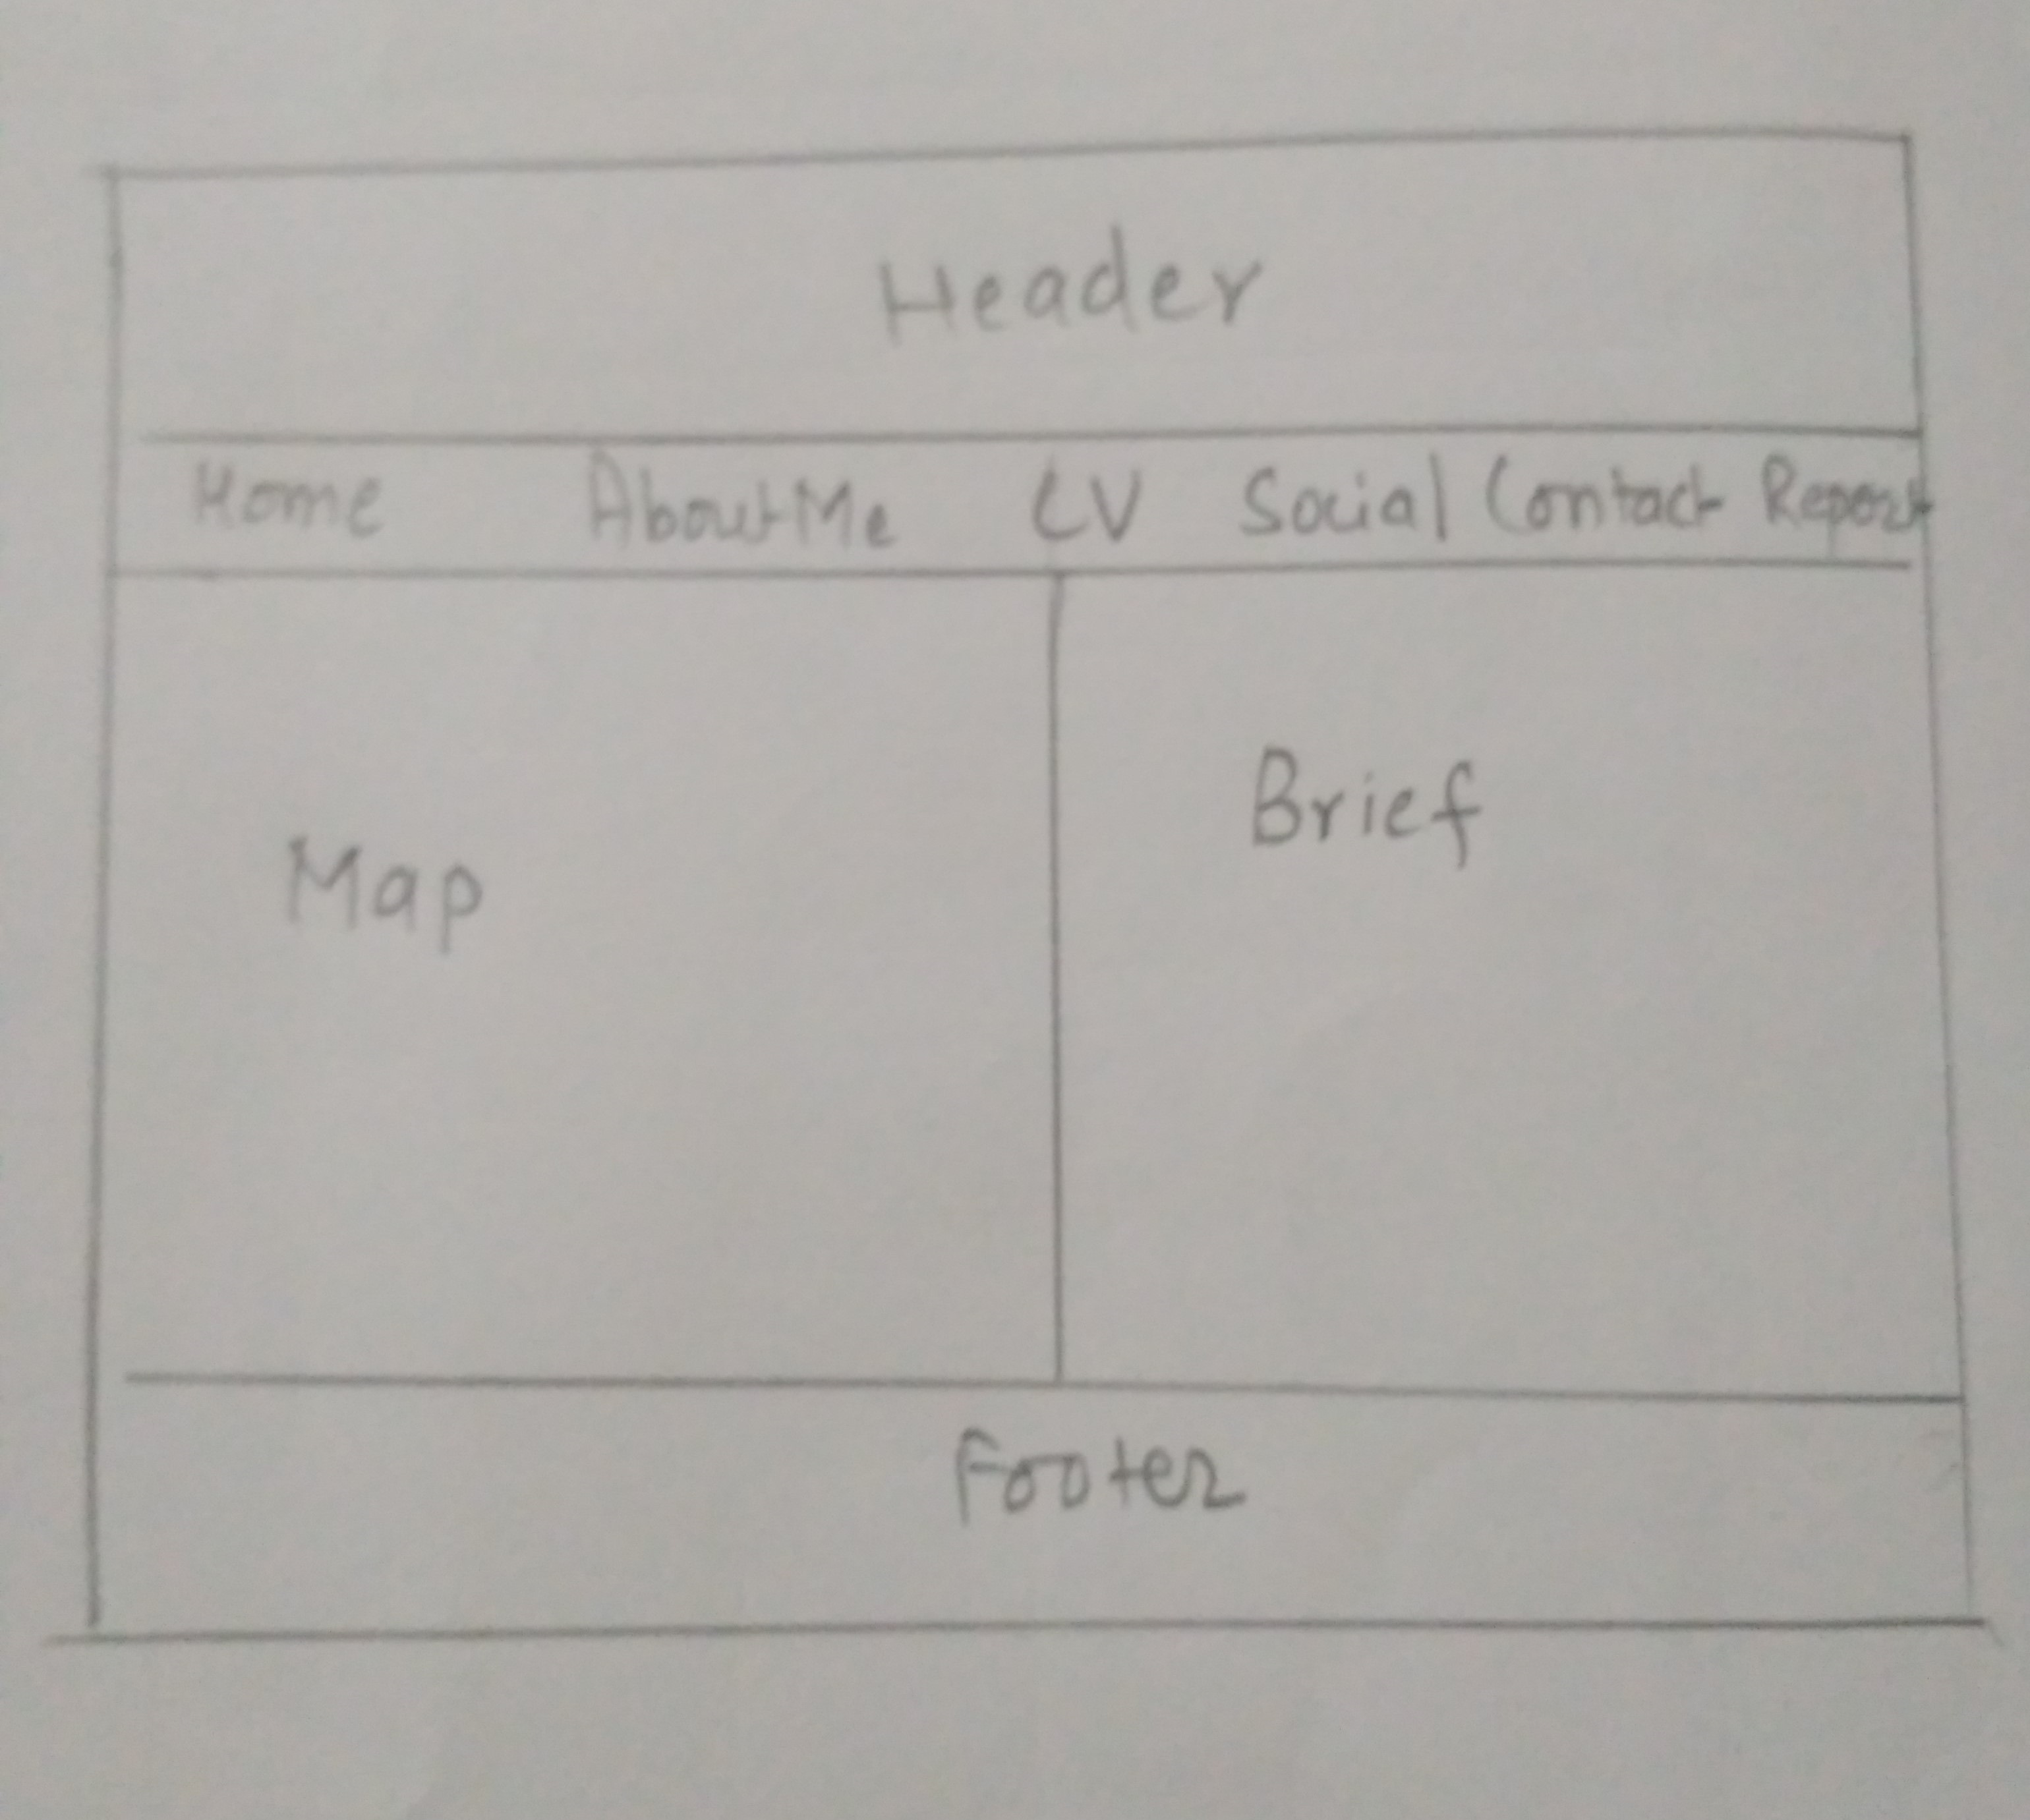 Header
Home AboutMe CV Social Contact Report
Brief
Map
Footer